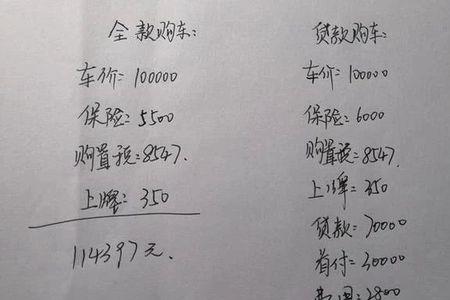 全款购车:
车价=100000
保险=5500
购置税=8547.
上牌=350
114397元.
贷款购车:
车价=100000
保险=6000
购置税=8547.
上牌=350
贷款=70000
首付=30000
=2800